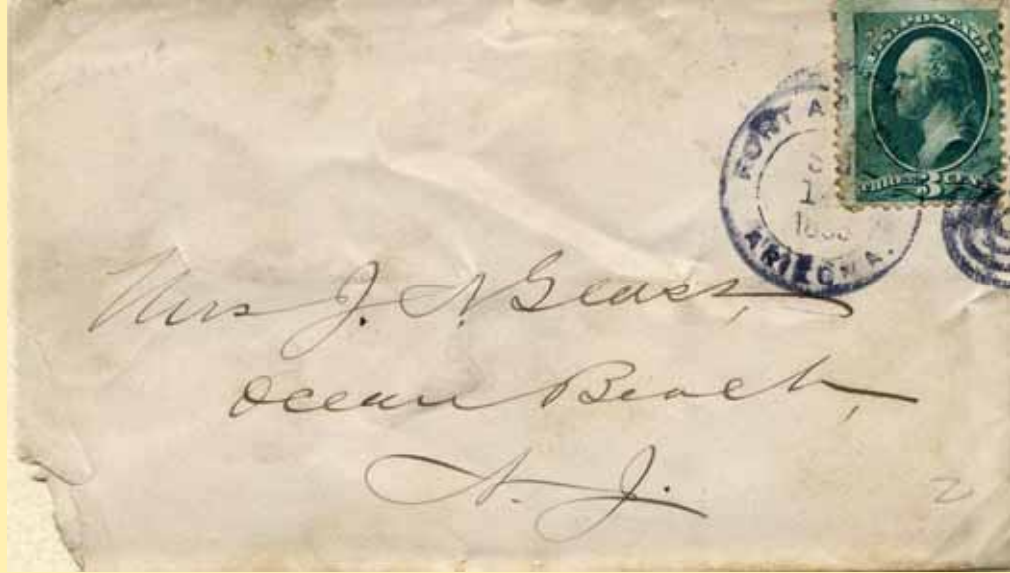 U.S. POSTAGE
THREE 3 CENTS
FORT A
ARIZONA.
Mrs J. N. Glass,
Ocean Beach,
N. J.
2